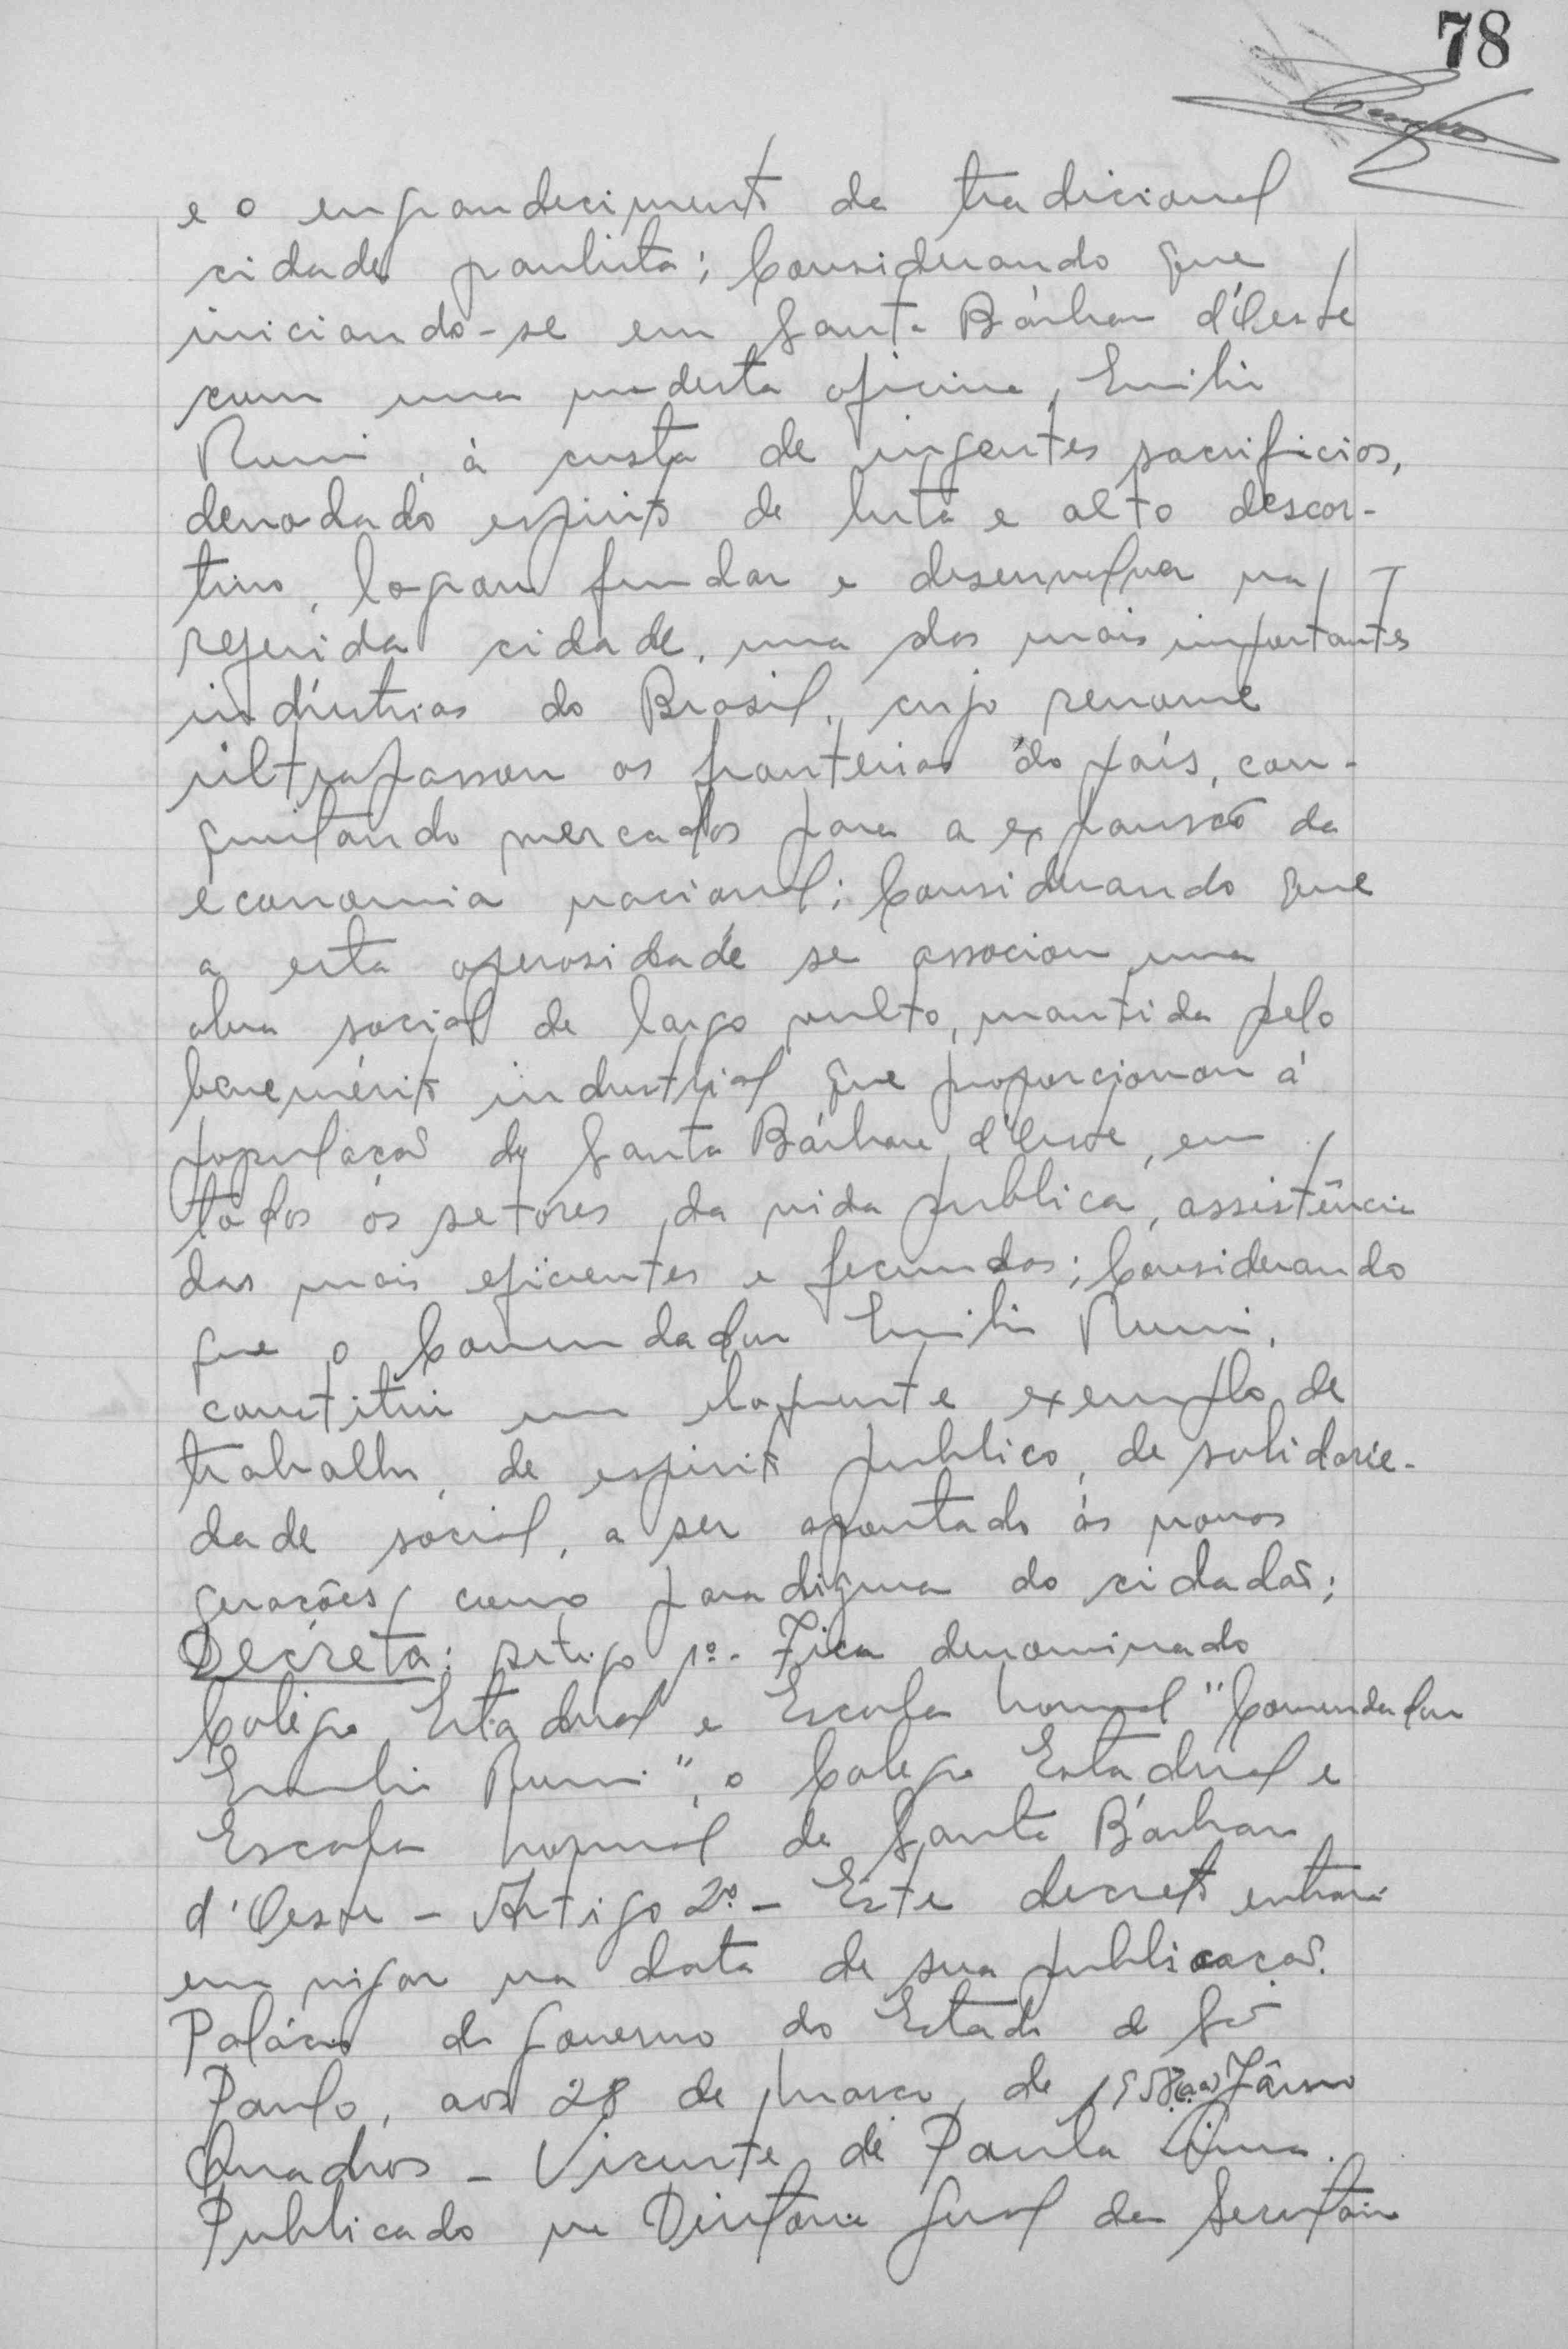 78
e o engrandecimento da tradicional
cidade paulista; Considerando que
iniciando-se em Santa Bárbara d'Oeste
com uma modesta oficina, Emilio
Romi, à custa de ingentes sacrificios,
denodado espirito de luta e alto descor-
tino, logrou fundar e desenvolver na
referida cidade, uma das mais importantes
indústrias do Brasil, cujo renome
ultrapassou as fronteiras do país, con-
quistando mercados para a expansão da
economia nacional; Considerando que
a esta operosidade se associou uma
obra social de largo vulto, mantida pelo
benemérito industrial que proporcionou à
população de Santa Bárbara d'Oeste, em
todos os setores da vida publica, assistência
das mais eficientes e fecundas; Considerando
que o Comendador Emilio Romi,
constitui um eloquente exemplo de
trabalho, de espirito publico, de solidarie-
dade social, a ser apontado às novas
gerações como paradigma do cidadão;
Decreta: Artigo 1º - Fica denominado
Colégio Estadual e Escola Normal "Comendador
Emilio Romi", o Colégio Estadual e
Escola Normal de Santa Bárbara
d'Oeste - Artigo 2º - Este decreto entrará
em vigor na data de sua publicação.
Palácio do Governo do Estado de São
Paulo, aos 28 de março de 1958 (aa) Jânio
Quadros - Vicente de Paula Lima.
Publicado na Diretoria Geral da Secretaria